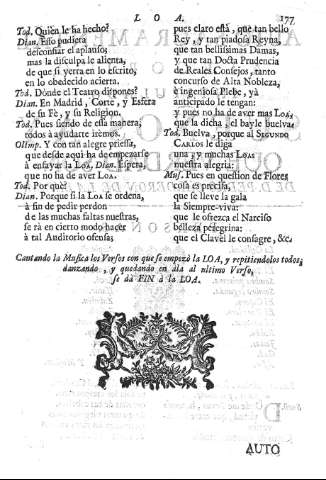 LOA. 177
Tod. Quièn le ha hecho?
Dian. Esso pudiera
desconfiar el aplauso;
mas la disculpa le alienta,
de que si yerra en lo escrito,
en lo obedecido acierta.
Tod. Dònde el Teatro dispones?
Dian. En Madrid, Corte, y Esfera
de su Fè, y su Religion.
Tod. Pues siendo de essa manera,
todos à ayudarte irèmos.
Olimp. Y con tan alegre priessa,
que desde aqui ha de empezarse
à ensayar la Loa, Dian. Espera,
que no ha de aver Loa.
Tod. Por què?
Dian. Porque si la Loa se ordena,
à fin de pedir perdon
de las muchas faltas nuestras,
se rà en cierto modo hacer
à tal Auditorio ofensa;
pues claro està, que tan bello
Rey, y tan piadosa Reyna,
que tan bellissimas Damas,
y que tan Docta Prudencia
de Reales Consejos, tanto
concurso de Alta Nobleza,
è ingeniosa Plebe, yà
anticipado le tengan:
y pues no ha de aver mas Loa,
que la dicha, el bayle buelva.
Tod. Buelva, porque al SEGUNDO
CARLOS le diga
una, y muchas Loa
nuestra alegria:
Mus. Pues en question de Flores
cosa es precisa,
que se lleve la gala
la Siempre-viva:
que le ofrezca el Narciso
belleza peregrina:
que el Clavel le consagre, &c.
Cantando la Musica los Versos con que se empezò la LOA, y repitiendolos todos,
danzando, y quedando en ala al ultimo Verso,
se dà FIN à la LOA.
AUTO